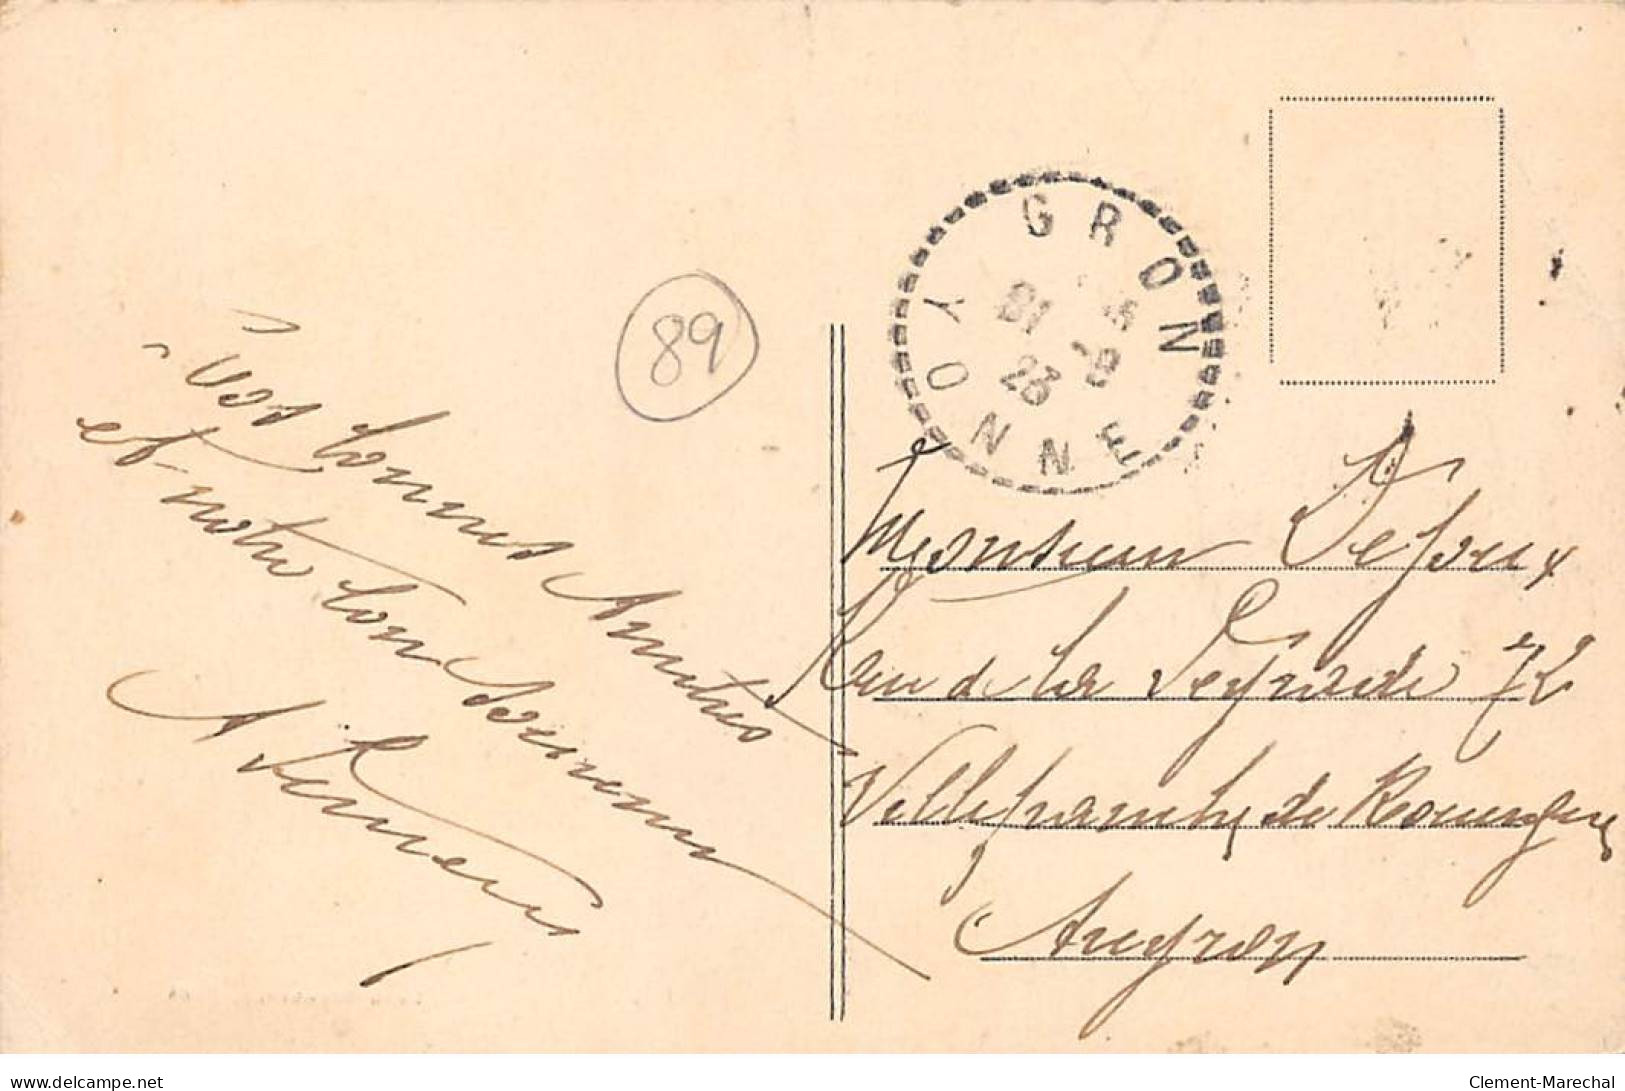 Vos bonnes Amitiés
et notre bon souvenir
89
GRON
YONNE
23
Monsieur Defoux
Rue de la 72
Villefranche de Rouergue
Aveyron
delcampe.net
Clement-Marechal